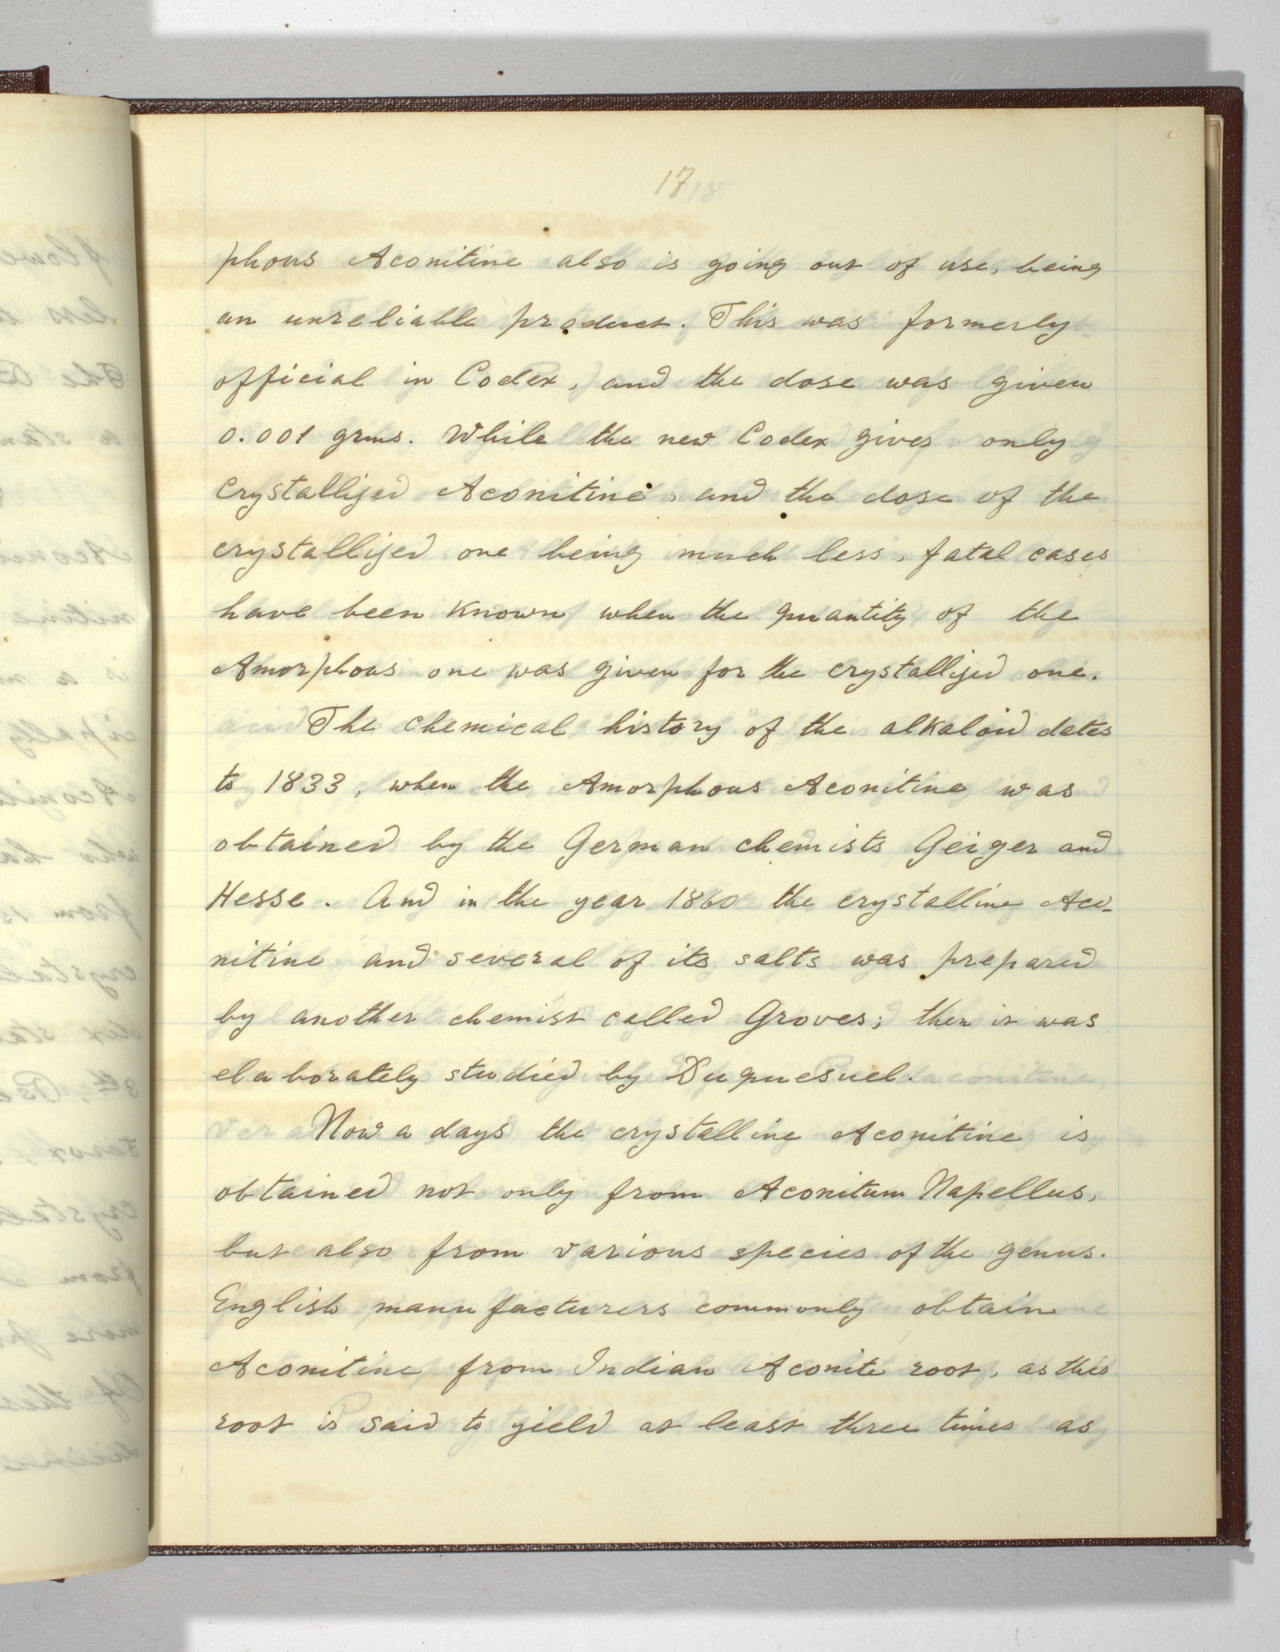 17
phous Aconitine also is going out of use, being
an unreliable product. This was formerly
official in Codex, and the dose was given
0.001 grms. While the new Codex gives only
Crystallized Aconitine, and the dose of the
crystallized one being much less, fatal cases
have been known when the quantity of the
Amorphous one was given for the crystallized one.
The chemical history of the alkaloid dates
to 1833, when the Amorphous Aconitine was
obtained by the German chemists Geiger and
Hesse. And in the year 1860 the crystalline Aco-
nitine and several of its salts was prepared
by another chemist called Groves; then it was
elaborately studied by Duquesnel.
Now a days the crystalline Aconitine is
obtained not only from Aconitum Napellus,
but also from various species of the genus.
English manufacturers commonly obtain
Aconitine from Indian Aconite root, as this
root is said to yield at least three times as